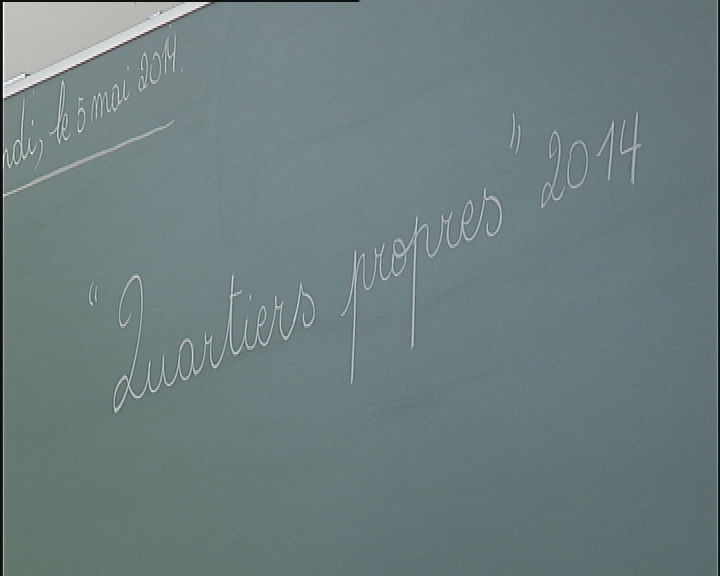 ndi, le 5 mai 2014.
"Quartiers propres" 2014